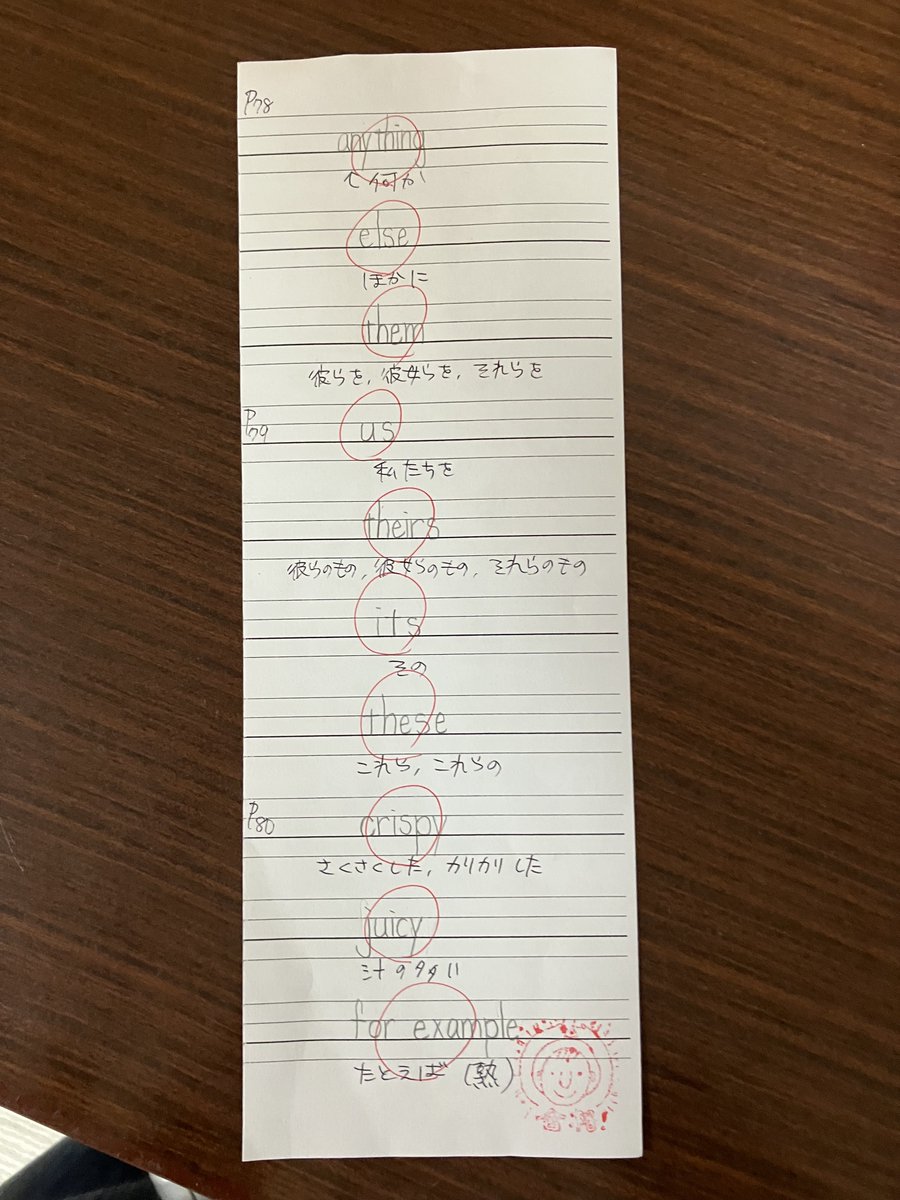 P78
anything
何か
else
ほかに
them
彼らを, 彼女らを, それらを
P79
us
私たちを
theirs
彼らのもの, 彼女らのもの, それらのもの
its
その
these
これら, これらの
P80
crispy
さくさくした, カリカリした
juicy
汁の多い
for example
たとえば (熟)